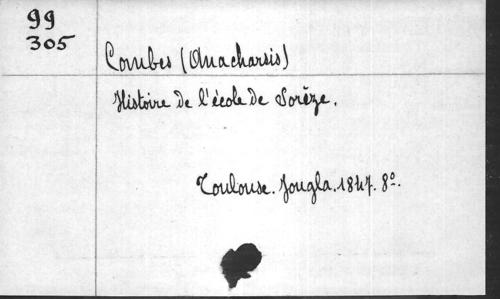 99
305
Combes (Anacharsis)
Histoire de l'école de Sorèze.
Toulouse. Jougla. 1847. 8º.